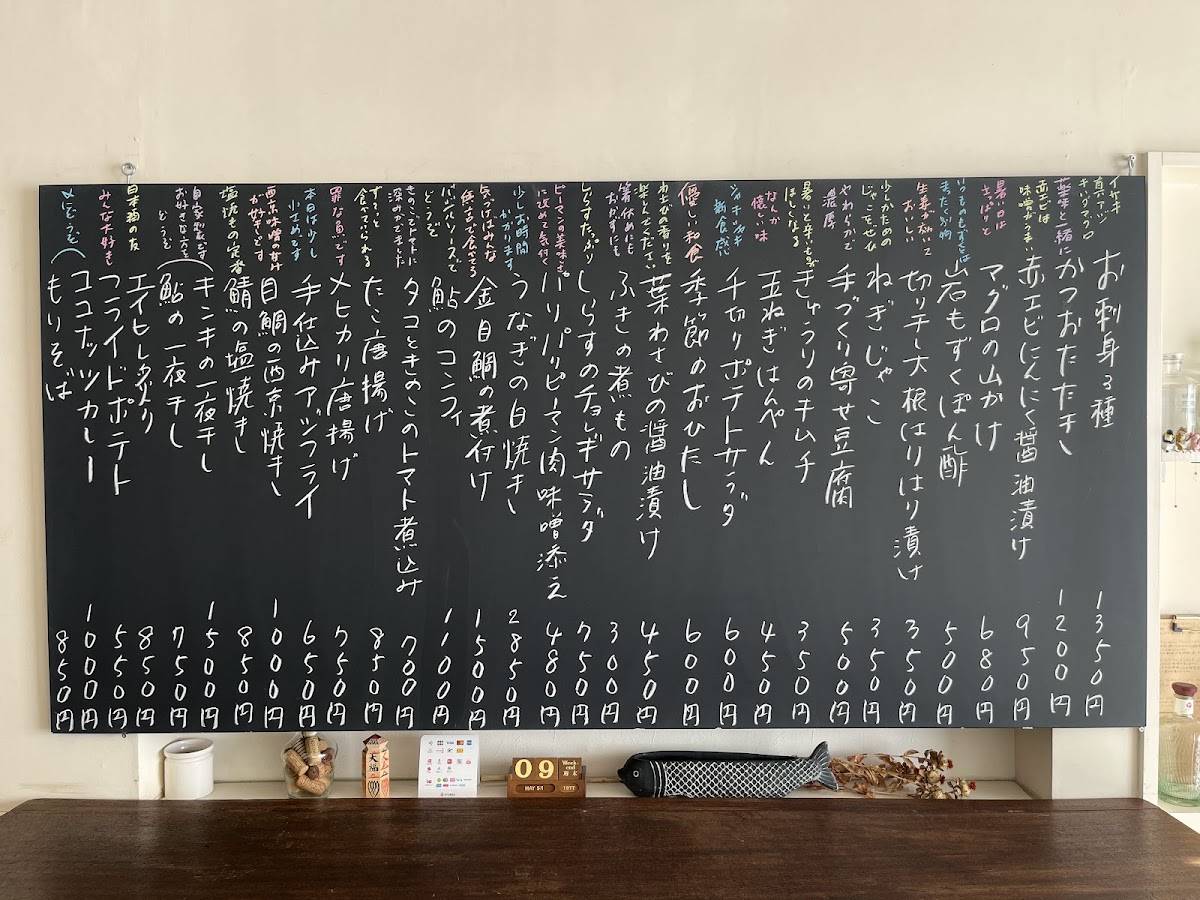 お刺身3種
1350円
薬味と一緒に
かつおたたき
1200円
赤エビは
味噌がうまい
赤エビにんにく醤油漬け
950円
暑い日は
さっぱりと
マグロの山かけ
680円
いつものもずくとは
まったく別物
岩もずくぽん酢
500円
生姜が効いて
おいしい
切り干し大根はりはり漬け
350円
ねぎじゃこ
350円
やわらかで
濃厚
手づくり寄せ豆腐
500円
暑いと辛いものが
ほしくなる
きゅうりのキムチ
350円
なんか
懐しい味
玉ねぎはんぺん
450円
シャキシャキ
新食感
千切りポテトサラダ
600円
優しい和食
季節のおひたし
600円
わさびの香りを
楽しんでください
葉わさびの醤油漬け
450円
箸休めにも
おかずにも
ふきの煮もの
300円
しらすたっぷり
しらすのチョレギサラダ
750円
ピーマンの美味しさ
に改めて気付く
パリパリピーマン肉味噌添え
480円
少しお時間
かかります
うなぎの白焼き
2850円
金目鯛の煮付け
1500円
バルサミコソースで
どうぞ
鮎のコンフィ
1100円
きのことトマトで
深みがでました
タコときのこのトマト煮込み
700円
ずーっと
食べていられる
たこ唐揚げ
850円
罪な奴です
メヒカリ唐揚げ
750円
本日は少し
小さめです
手仕込みアジフライ
650円
西京味噌の甘み
が好きです
目鯛の西京焼き
1000円
塩焼きの定番
鯖の塩焼き
850円
自家製です
お好きな方を
どうぞ
キンキの一夜干し
1500円
鮎の一夜干し
750円
日本酒の友
エイヒレ炙り
850円
みんな大好き
フライドポテト
550円
〆にどうぞ
ココナッツカレー
1000円
もりそば
850円
大福
09
Week-end
週末
MAY 5月